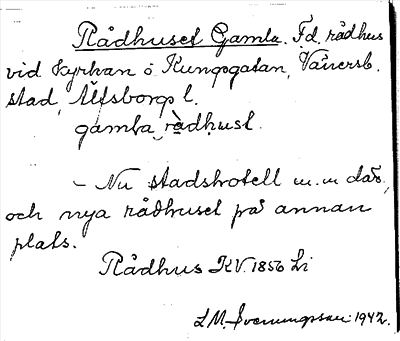 Rådhuset Gamla. F.d. rådhus
vid kyrkan o. Kungsgatan, Vänersb.
stad, Älfsborgs l.
gamla rådhust.
– Nu stadshotell m.m där,
och nya rådhuset på annan
plats.
Rådhus KV. 1856 Li
L.M. Svenungsson 1942.